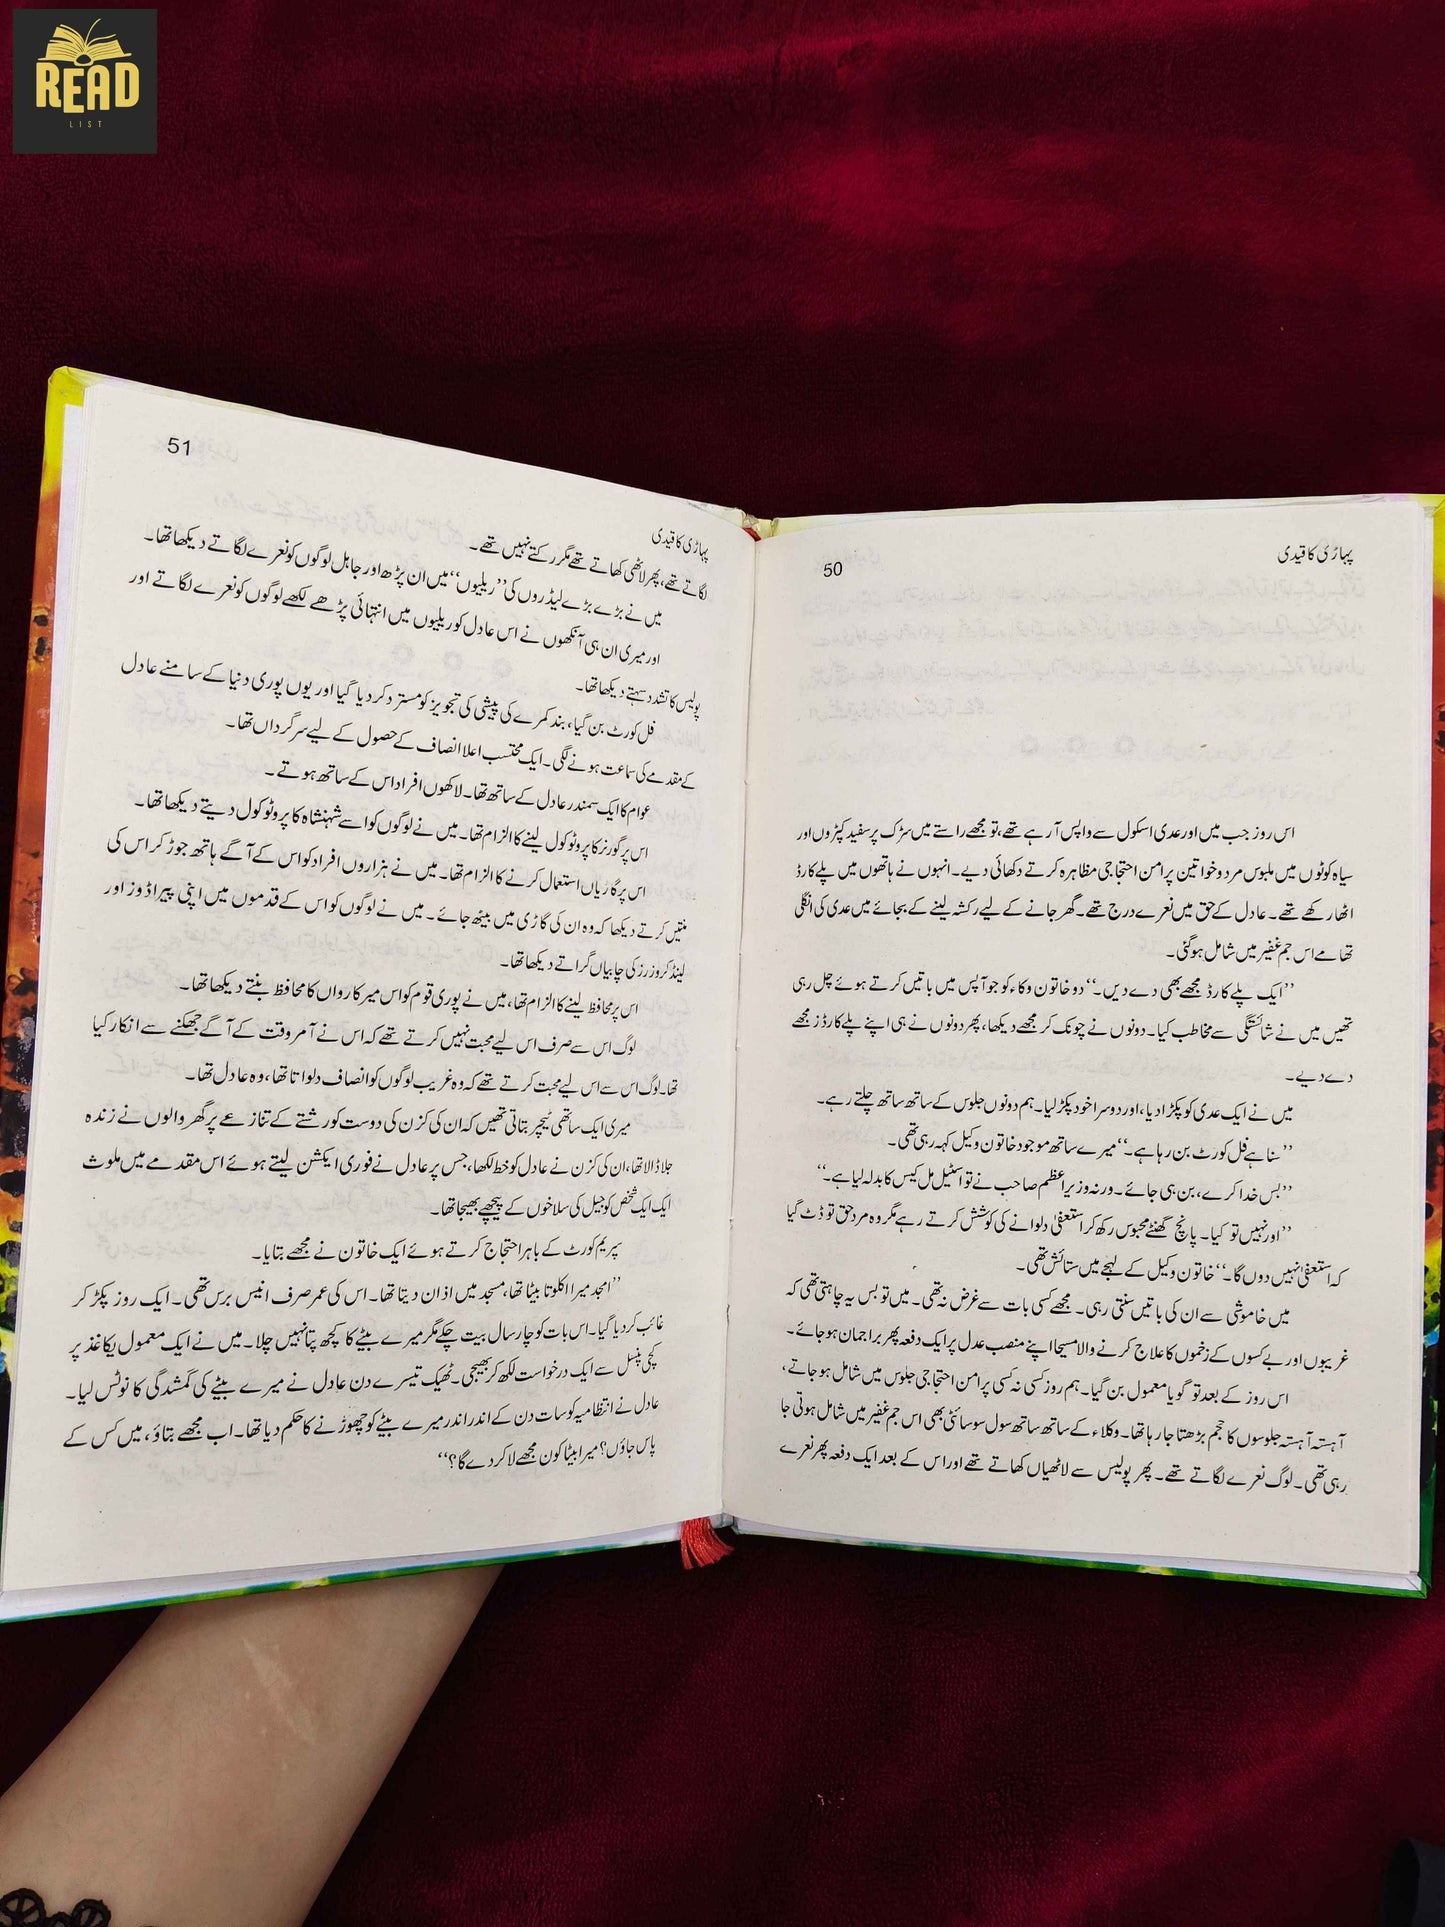 READ
LIST
پہاڑی کا قیدی
50
اس روز جب میں اور عدی اسکول سے واپس آ رہے تھے، تو مجھے راستے میں سڑک پر سفید کپڑوں اور
سیاہ کوٹوں میں ملبوس مرد و خواتین پر امن احتجاجی مظاہرہ کرتے دکھائی دیے۔ انہوں نے ہاتھوں میں پلے کارڈ
اٹھا رکھے تھے۔ عادل کے حق میں نعرے درج تھے۔ گھر جانے کے لیے رکشہ لینے کے بجائے میں عدی کی انگلی
تھامے اس جم غفیر میں شامل ہو گئی۔
’’ایک پلے کارڈ مجھے بھی دے دیں۔‘‘ دو خاتون وکاء کو جو آپس میں باتیں کرتے ہوئے چل رہی
تھیں میں نے شائستگی سے مخاطب کیا۔ دونوں نے چونک کر مجھے دیکھا، پھر دونوں نے ہی اپنے پلے کارڈز مجھے
دے دیے۔
میں نے ایک عدی کو پکڑا دیا، اور دوسرا خود پکڑ لیا۔ ہم دونوں جلوس کے ساتھ ساتھ چلتے رہے۔
’’سنا ہے فل کورٹ بن رہا ہے۔‘‘ میرے ساتھ موجود خاتون وکیل کہہ رہی تھی۔
’’بس خدا کرے، بن ہی جائے۔ ورنہ وزیر اعظم صاحب نے تو اسٹیل مل کیس کا بدلہ لیا ہے۔‘‘
’’اور نہیں تو کیا۔ پانچ گھنٹے محبوس رکھ کر استعفیٰ دلوانے کی کوشش کرتے رہے مگر وہ مرد حق تو ڈٹ گیا
کہ استعفیٰ نہیں دوں گا۔‘‘ خاتون وکیل کے لہجے میں ستائش تھی۔
میں خاموشی سے ان کی باتیں سنتی رہی۔ مجھے کسی بات سے غرض نہ تھی۔ میں تو بس یہ چاہتی تھی کہ
غریبوں اور بے کسوں کے زخموں کا علاج کرنے والا مسیحا اپنے منصب عدل پر ایک دفعہ پھر براجمان ہو جائے۔
اس روز کے بعد تو گویا معمول بن گیا۔ ہم روز کسی نہ کسی پر امن احتجاجی جلوس میں شامل ہو جاتے،
آہستہ آہستہ جلوسوں کا حجم بڑھتا جا رہا تھا۔ وکلاء کے ساتھ ساتھ سول سوسائٹی بھی اس جم غفیر میں شامل ہوتی جا
رہی تھی۔ لوگ نعرے لگاتے تھے۔ پھر پولیس سے لاٹھیاں کھاتے تھے اور اس کے بعد ایک دفعہ پھر نعرے
پہاڑی کا قیدی
51
لگاتے تھے، پھر لاٹھی کھاتے تھے مگر رکتے نہیں تھے۔
میں نے بڑے بڑے لیڈروں کی ’’ریلیوں‘‘ میں ان پڑھ اور جاہل لوگوں کو نعرے لگاتے دیکھا تھا۔
اور میری ان ہی آنکھوں نے اس عادل کو ریلیوں میں انتہائی پڑھے لکھے لوگوں کو نعرے لگاتے اور
پولیس کا تشدد سہتے دیکھا تھا۔
فل کورٹ بن گیا، بند کمرے کی پیشی کی تجویز کو مسترد کر دیا گیا اور یوں پوری دنیا کے سامنے عادل
کے مقدمے کی سماعت ہونے لگی۔ ایک محتسب اعلا انصاف کے حصول کے لیے سرگرداں تھا۔
عوام کا ایک سمندر عادل کے ساتھ تھا۔ لاکھوں افراد اس کے ساتھ ہوتے۔
اس پر گورنر کا پروٹوکول لینے کا الزام تھا۔ میں نے لوگوں کو اسے شہنشاہ کا پروٹوکول دیتے دیکھا تھا۔
اس پر گاڑیاں استعمال کرنے کا الزام تھا۔ میں نے ہزاروں افراد کو اس کے آگے ہاتھ جوڑ کر اس کی
منتیں کرتے دیکھا کہ وہ ان کی گاڑی میں بیٹھ جائے۔ میں نے لوگوں کو اس کے قدموں میں اپنی پیراڈوز اور
لینڈ کروزرز کی چابیاں گراتے دیکھا تھا۔
اس پر محافظ لینے کا الزام تھا، میں نے پوری قوم کو اس میر کارواں کا محافظ بنتے دیکھا تھا۔
لوگ اس سے صرف اس لیے محبت نہیں کرتے تھے کہ اس نے آمر وقت کے آگے جھکنے سے انکار کیا
تھا۔ لوگ اس سے اس لیے محبت کرتے تھے کہ وہ غریب لوگوں کو انصاف دلواتا تھا، وہ عادل تھا۔
میری ایک ساتھی ٹیچر بتاتی تھیں کہ ان کی کزن کی دوست کو رشتے کے تنازعے پر گھر والوں نے زندہ
جلا ڈالا تھا، ان کی کزن نے عادل کو خط لکھا، جس پر عادل نے فوری ایکشن لیتے ہوئے اس مقدمے میں ملوث
ایک ایک شخص کو جیل کی سلاخوں کے پیچھے بھیجا تھا۔
سپریم کورٹ کے باہر احتجاج کرتے ہوئے ایک خاتون نے مجھے بتایا۔
’’امجد میرا اکلوتا بیٹا تھا، مسجد میں اذان دیتا تھا۔ اس کی عمر صرف انیس برس تھی۔ ایک روز پکڑ کر
غائب کر دیا گیا۔ اس بات کو چار سال بیت چکے مگر میرے بیٹے کا کچھ پتا نہیں چلا۔ میں نے ایک معمولی کاغذ پر
کچی پنسل سے ایک درخواست لکھ کر بھیجی۔ ٹھیک تیسرے دن عادل نے میرے بیٹے کی گمشدگی کا نوٹس لیا۔
عادل نے انتظامیہ کو سات دن کے اندر اندر میرے بیٹے کو چھوڑنے کا حکم دیا تھا۔ اب مجھے بتاؤ، میں کس کے
پاس جاؤں؟ میرا بیٹا کون مجھے لا کر دے گا؟‘‘